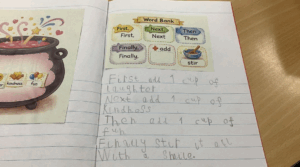 Word Bank
First, Next Then
First, Next Then
Finally, add
Finally, stir
kindness fun
First add 1 cup of
laughter
Next add 1 cup of
kindness
Then add 1 cup of
fun
Finally stir it all
With a smile.